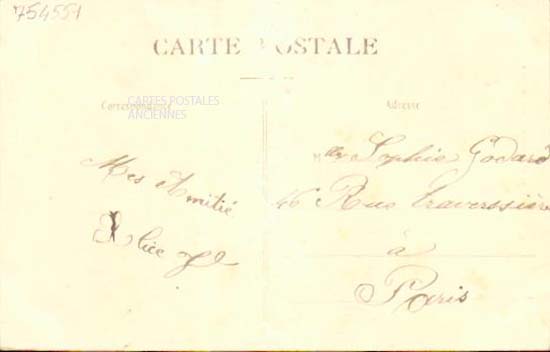 754551
CARTE POSTALE
Correspondance
Adresse
CARTES POSTALES
ANCIENNES
Mes Amitié
Alice
Mlle Sophie Godard
46 Rue Traverssière
à
Paris